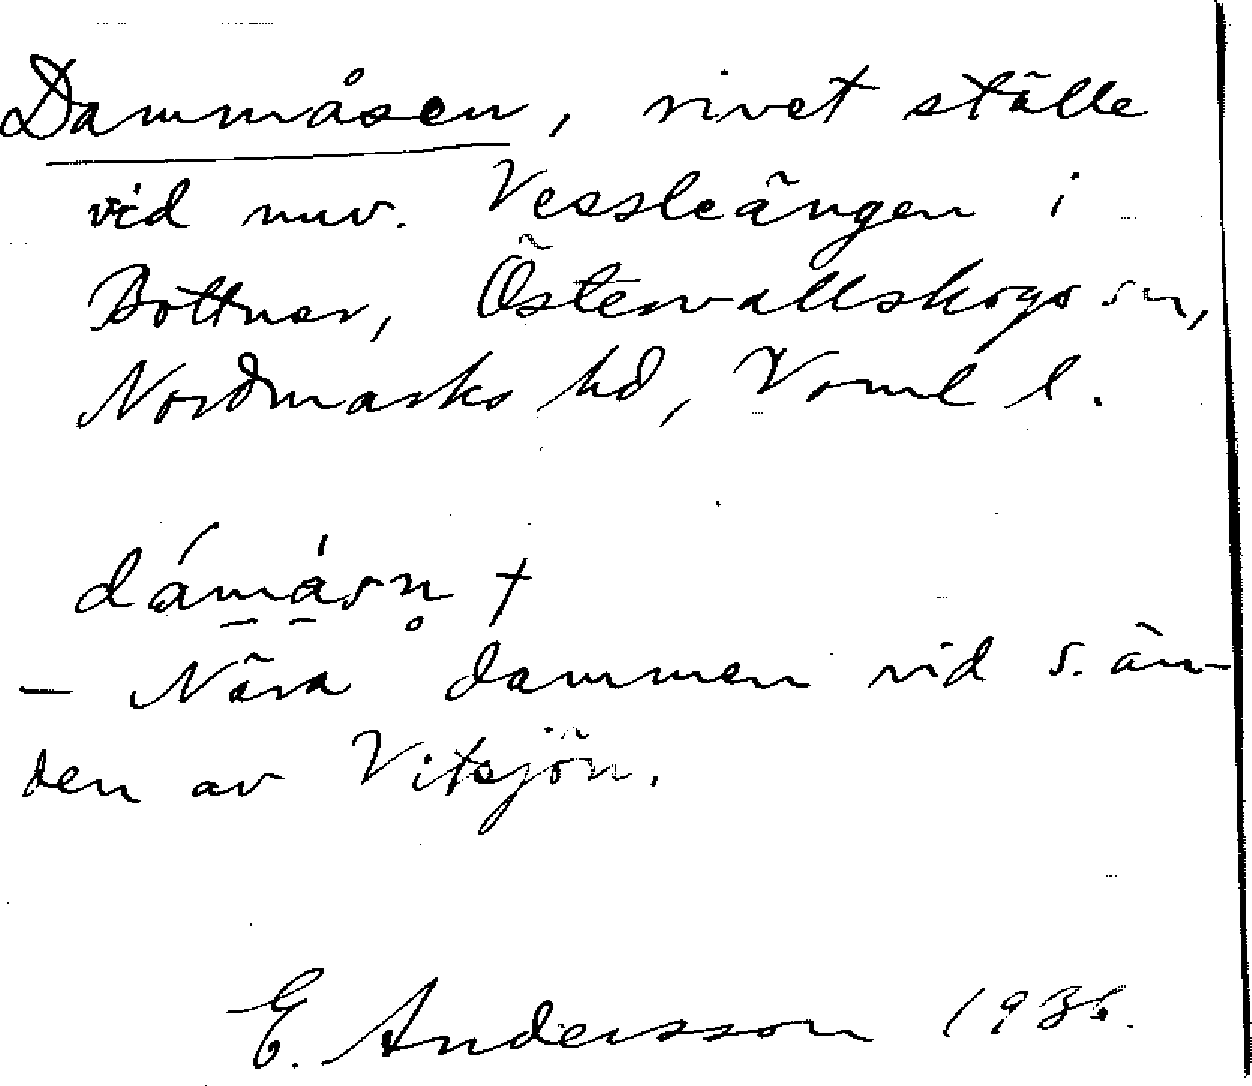 Dammåsen, rivet ställe
vid nuv. Vessleängen i
Bottnar, Östervallskogs sn,
Nordmarks hd, Vrml l.
dámásn̥ †
– Nära dammen vid s. än-
den av Vitsjön.
E. Andersson 1936.